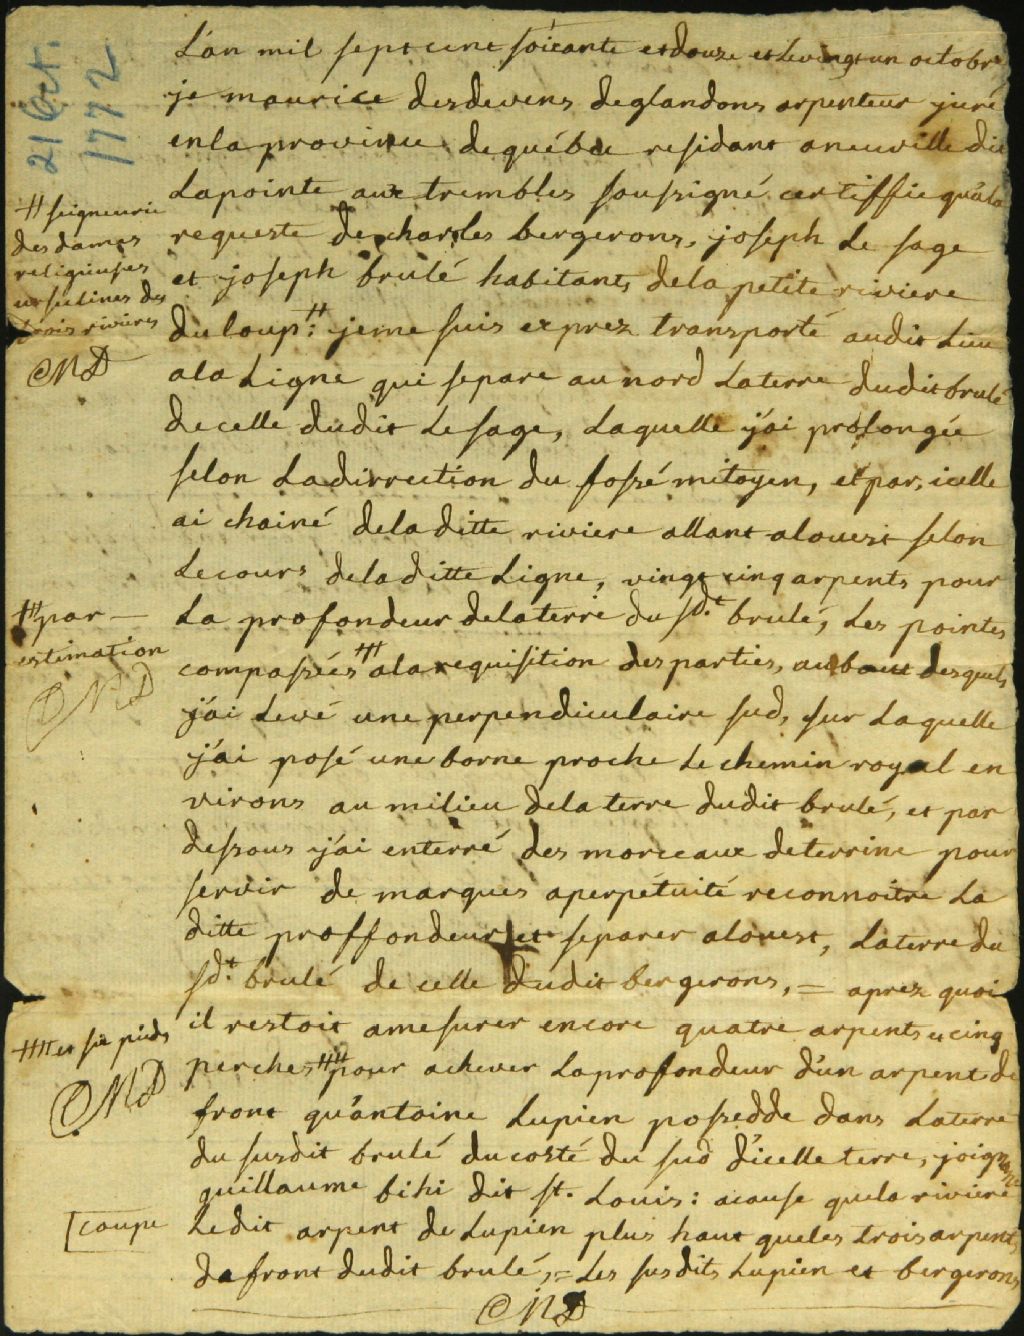 21 Oct.
1772
L'an mil sept cent soixante et douze et le vingt un octobre
je maurice desdevens deglandons arpenteur juré
en la province de québec residant a neuville dit
La pointe aux trembles soussigné certiffie qu'a la
requeste de charles bergerons, joseph Le sage
et joseph brulé habitants de la petite riviere
du loup:# je me suis exprez transporté audit Lieu
# seigneurie
des dames
religieuses
urselines des
trois rivières
MD
a la Ligne qui separe au nord La terre dudit brulé
de celle dudit Le sage, Laquelle j'ai prolongée
selon La dirrection du fossé mitoyen, et par icelle
ai chainé de la ditte riviere allant a louest selon
Le cours de la ditte Ligne, vingt cinq arpents pour
La profondeur de la terre du sdt brulé, Les pointes
compassées ## a la requisition des parties, au bout desquels
## par
estimation
MD
j'ai Levé une perpendiculaire sud, sur Laquelle
j'ai posé une borne proche Le chemin royal en
virons au milieu de la terre dudit brulé, et par
dessous j'ai enterré des morceaux de terrine pour
servir de marques a perpétuité reconnoitre La
ditte proffondeur et separer a louest, La terre du
sdt brulé de celle dudit bergerons, = aprez quoi
il restoit a mesurer encore quatre arpents et cinq
perches ### pour achever La profondeur d'un arpent de
### et six pieds
MD
front qu'antoine Lupien possedde dans La terre
du susdit brulé du costé du sud d'icelle terre, joignant
guillaume bihi dit st. Louis: a cause que la riviere
[coupe
Le dit arpent de Lupien plus haut que les trois arpents
de front dudit brulé, = Les susdits Lupien et bergerons
MD